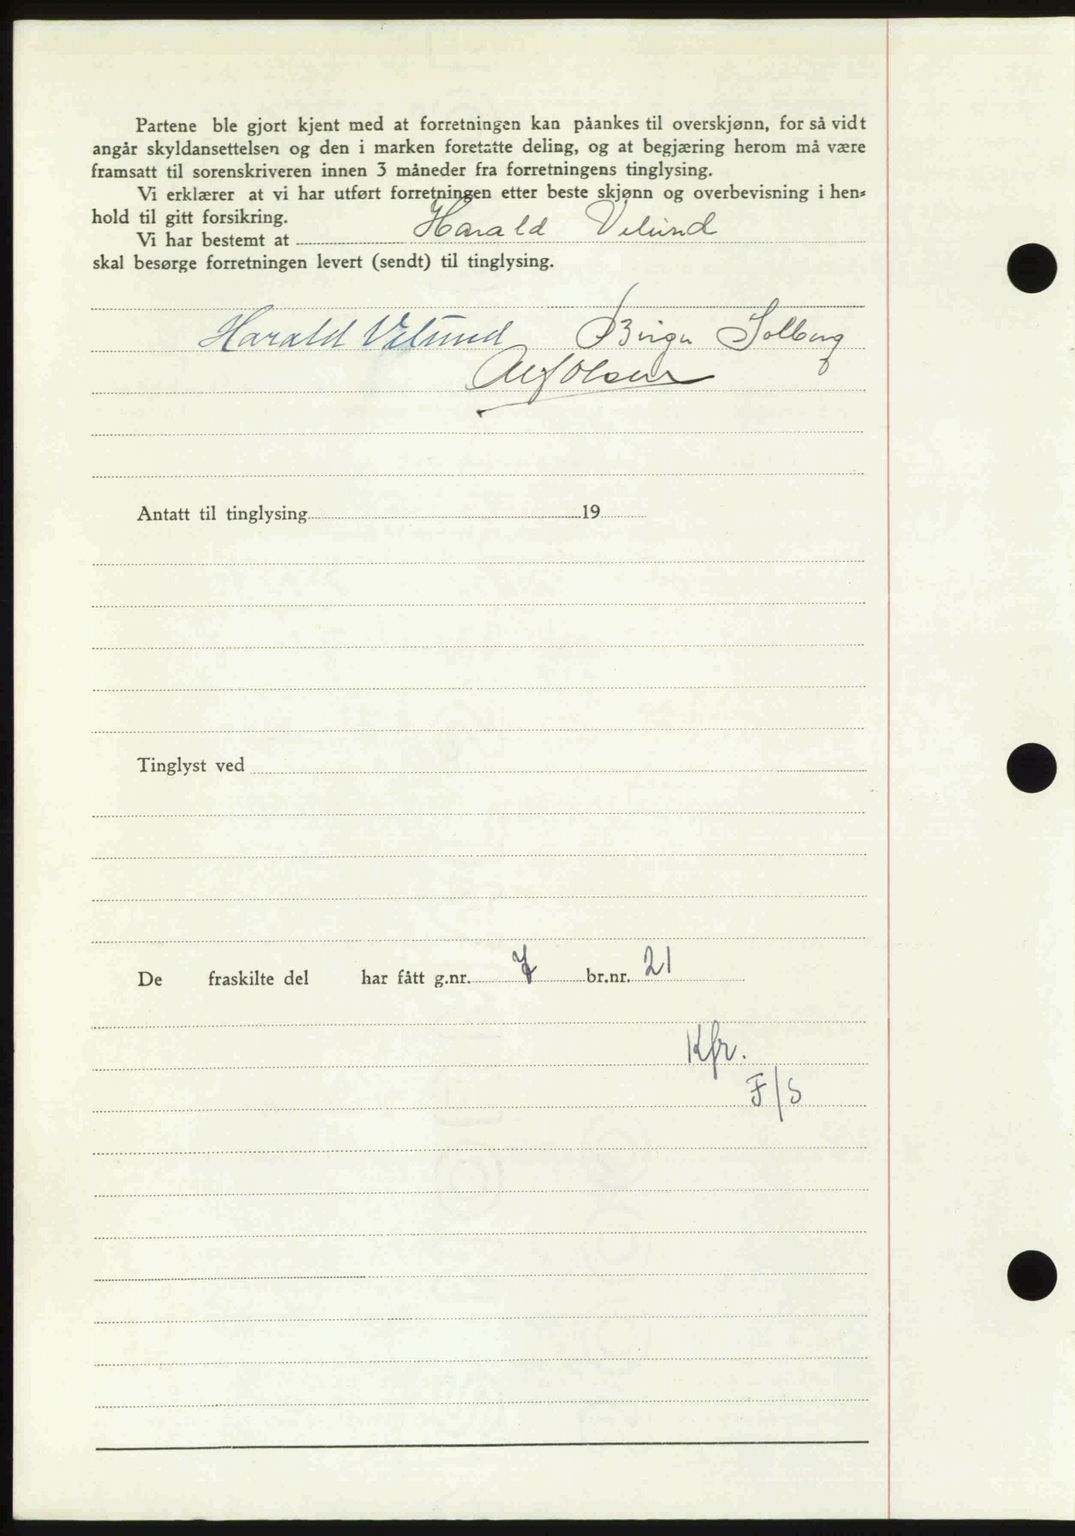 Partene ble gjort kjent med at forretningen kan påankes til overskjønn, for så vidt
angår skyldansettelsen og den i marken foretatte deling, og at begjæring herom må være
framsatt til sorenskriveren innen 3 måneder fra forretningens tinglysing.
Vi erklærer at vi har utført forretningen etter beste skjønn og overbevisning i hen-
hold til gitt forsikring.
Vi har bestemt at Harald Velund
skal besørge forretningen levert (sendt) til tinglysing.
Harald Velund Birger Solberg
Alf Olsen
Antatt til tinglysing 19
Tinglyst ved
De fraskilte del har fått g.nr. 7 br.nr. 21
Kfr.
F/S